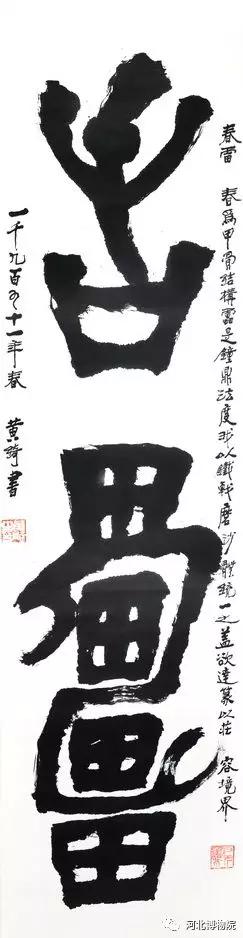 春雷 春為甲骨結構雷是鐘鼎法度我以鐵戟磨沙體統一之蓋欲達篆以莊容境界
春雷
一千九百九十一年春 黄綺書
河北博物院